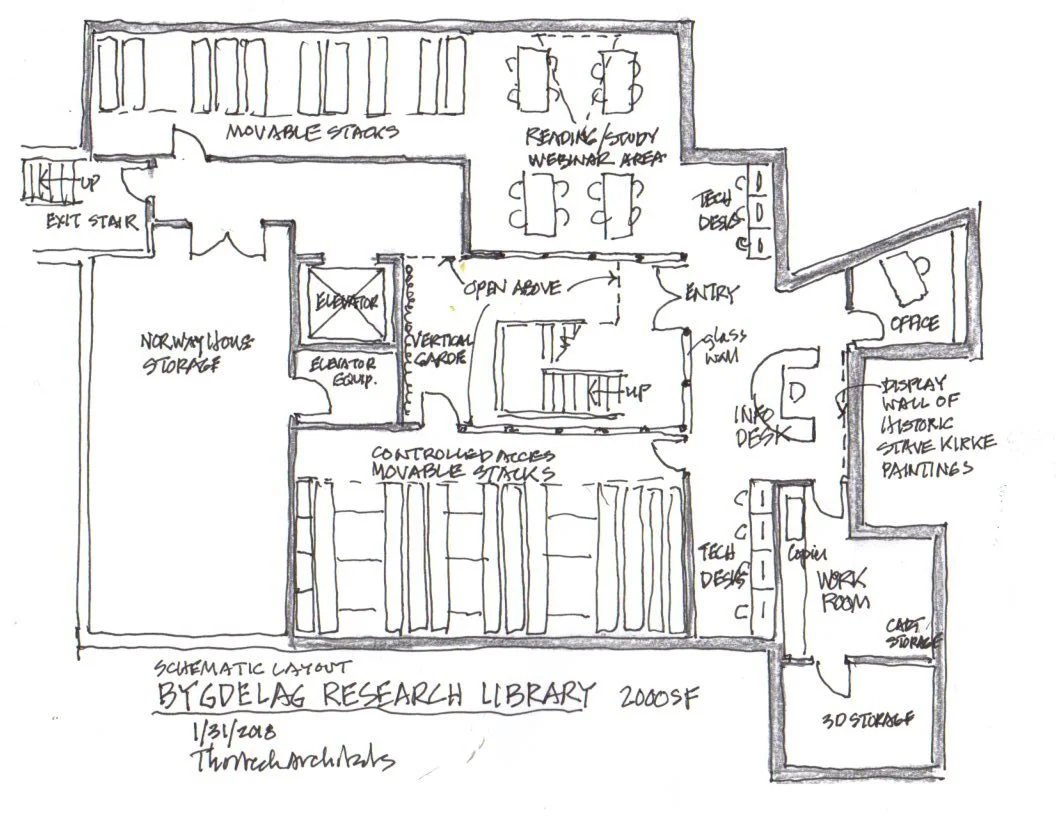 MOVABLE STACKS
READING/STUDY
WEBINAR AREA
UP
EXIT STAIR
TECH
DESKS
ELEVATOR
OPEN ABOVE
ENTRY
OFFICE
NORWAY HOUSE
STORAGE
ELEVATOR
EQUIP.
VERTICAL
GARDE
glass
wall
UP
INFO
DESK
DISPLAY
WALL OF
HISTORIC
STAVE KIRKE
PAINTINGS
CONTROLLED ACCES
MOVABLE STACKS
TECH
DESKS
Copier
WORK
ROOM
CART
STORAGE
3D STORAGE
SCHEMATIC LAYOUT
BYGDELAG RESEARCH LIBRARY 2000SF
1/31/2018